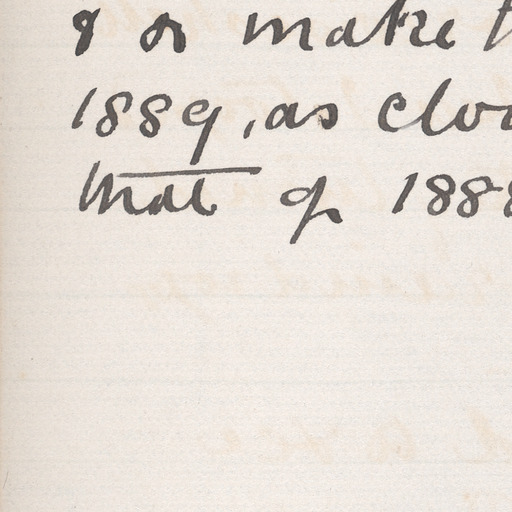 & so make
1889, as
that of 1888